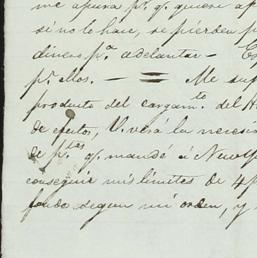 me apura pr. q. quiere ap
si no lo hace, se pierden p
dinero pa. adelantar — Es
pr. ellos. — = Me sup
producto del cargamto. del H
de efectos, V. verá la necesi
de ptas q. mandé á New
conseguir mis límites de 4 p
fondo segun mi orden, y